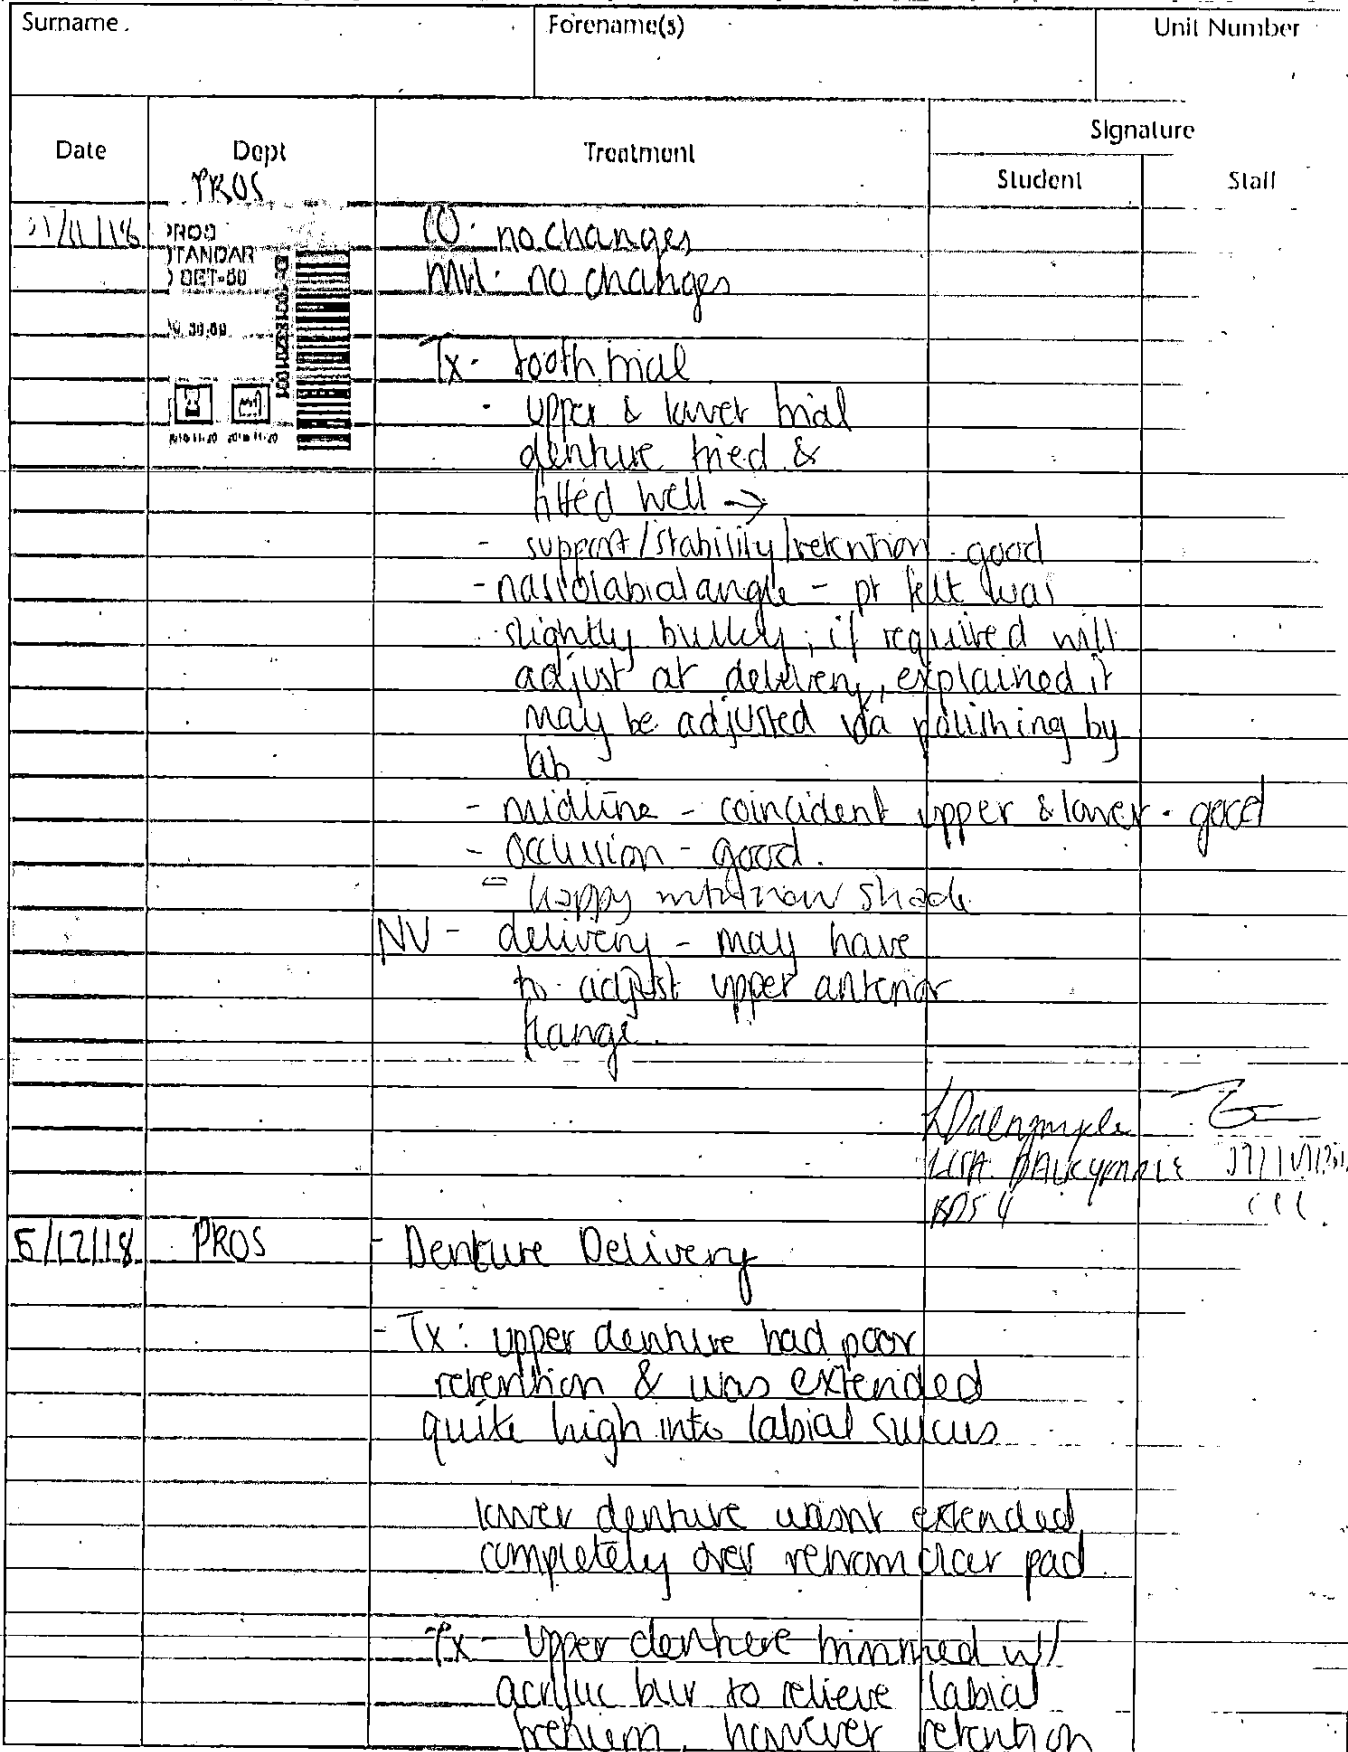 Surname
Forename(s)
Unit Number
Date
Dept
Treatment
Signature
Student
Staff
PROS
CO: no changes
MH: no changes
Tx - tooth trial
- upper & lower trial
denture tried &
fitted well →
- support/stability/retention - good
- nasiolabial angle - pt felt was
slightly bulky, if required will
adjust at delivery, explained it
may be adjusted via polishing by
lab
- midline - coincident upper & lower - good
- occlusion - good.
- happy with shade
NV - delivery - may have
to adjust upper anterior
flange.
BDS 4
5/12/18 PROS - Denture Delivery
- Tx: upper denture had poor
retention & was extended
quite high into labial sulcus
lower denture wasnt extended
completely over retromolar pad
Tx - Upper denture trimmed w/
acrylic bur to relieve labial
frenum, however retention